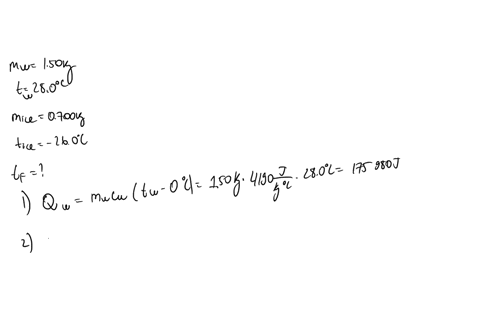 m_w = 1.50kg
t_w = 28.0°C
m_ice = 0.700kg
t_ice = -26.0°C
t_F = ?
1) Q_w = m_w c_w (t_w - 0°C) = 1.50kg · 4190 J/kg°C · 28.0°C = 175 980J
2)